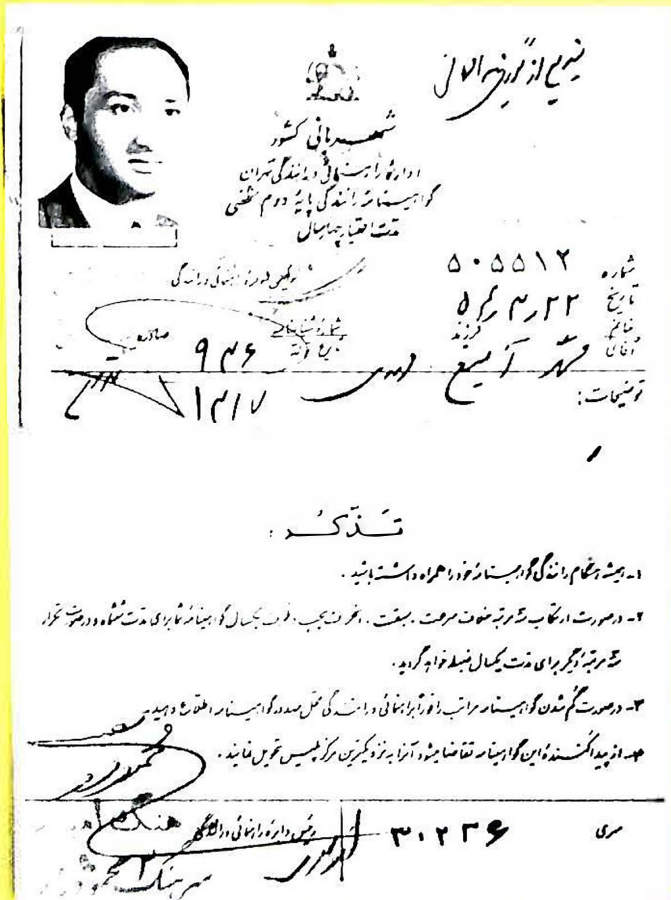 شهربانی کشور
اداره راهنمائی و رانندگی تهران
گواهینامه رانندگی پایه دوم شخصی
مدت اعتبار چهار سال
شماره ۵۰۵۵۱۲
تاریخ ۲۲ر۳ر
خانم
آقای
فرزند
شماره شناسنامه ۹۳۶ صادره
تاریخ تولد ۱۳۱۷
توضیحات:
تذکر :
۱- همیشه هنگام رانندگی گواهینامه خود را همراه داشته باشید .
۲- در صورت ارتکاب سه مرتبه تخلف سرعت . سبقت . انحراف بچپ . ظرف یکسال گواهینامه شما برای مدت ششماه و در صورت تکرار
سه مرتبه دیگر برای مدت یکسال ضبط خواهد گردید .
۳- در صورت گم شدن گواهینامه مراتب را فوراً براهنمائی و رانندگی محل صدور گواهینامه اطلاع دهید
۴- از پیدا کننده این گواهینامه تقاضا میشود آنرا به نزدیکترین مرکز پلیس تحویل نمایند .
سری ۳۰۲۳۶
رئیس دایره راهنمائی و رانندگی
سرهنگ